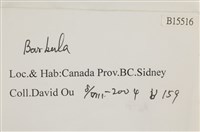 B15516
Barbula
Loc.& Hab:Canada Prov.BC.Sidney
Coll.David Ou 2004 159